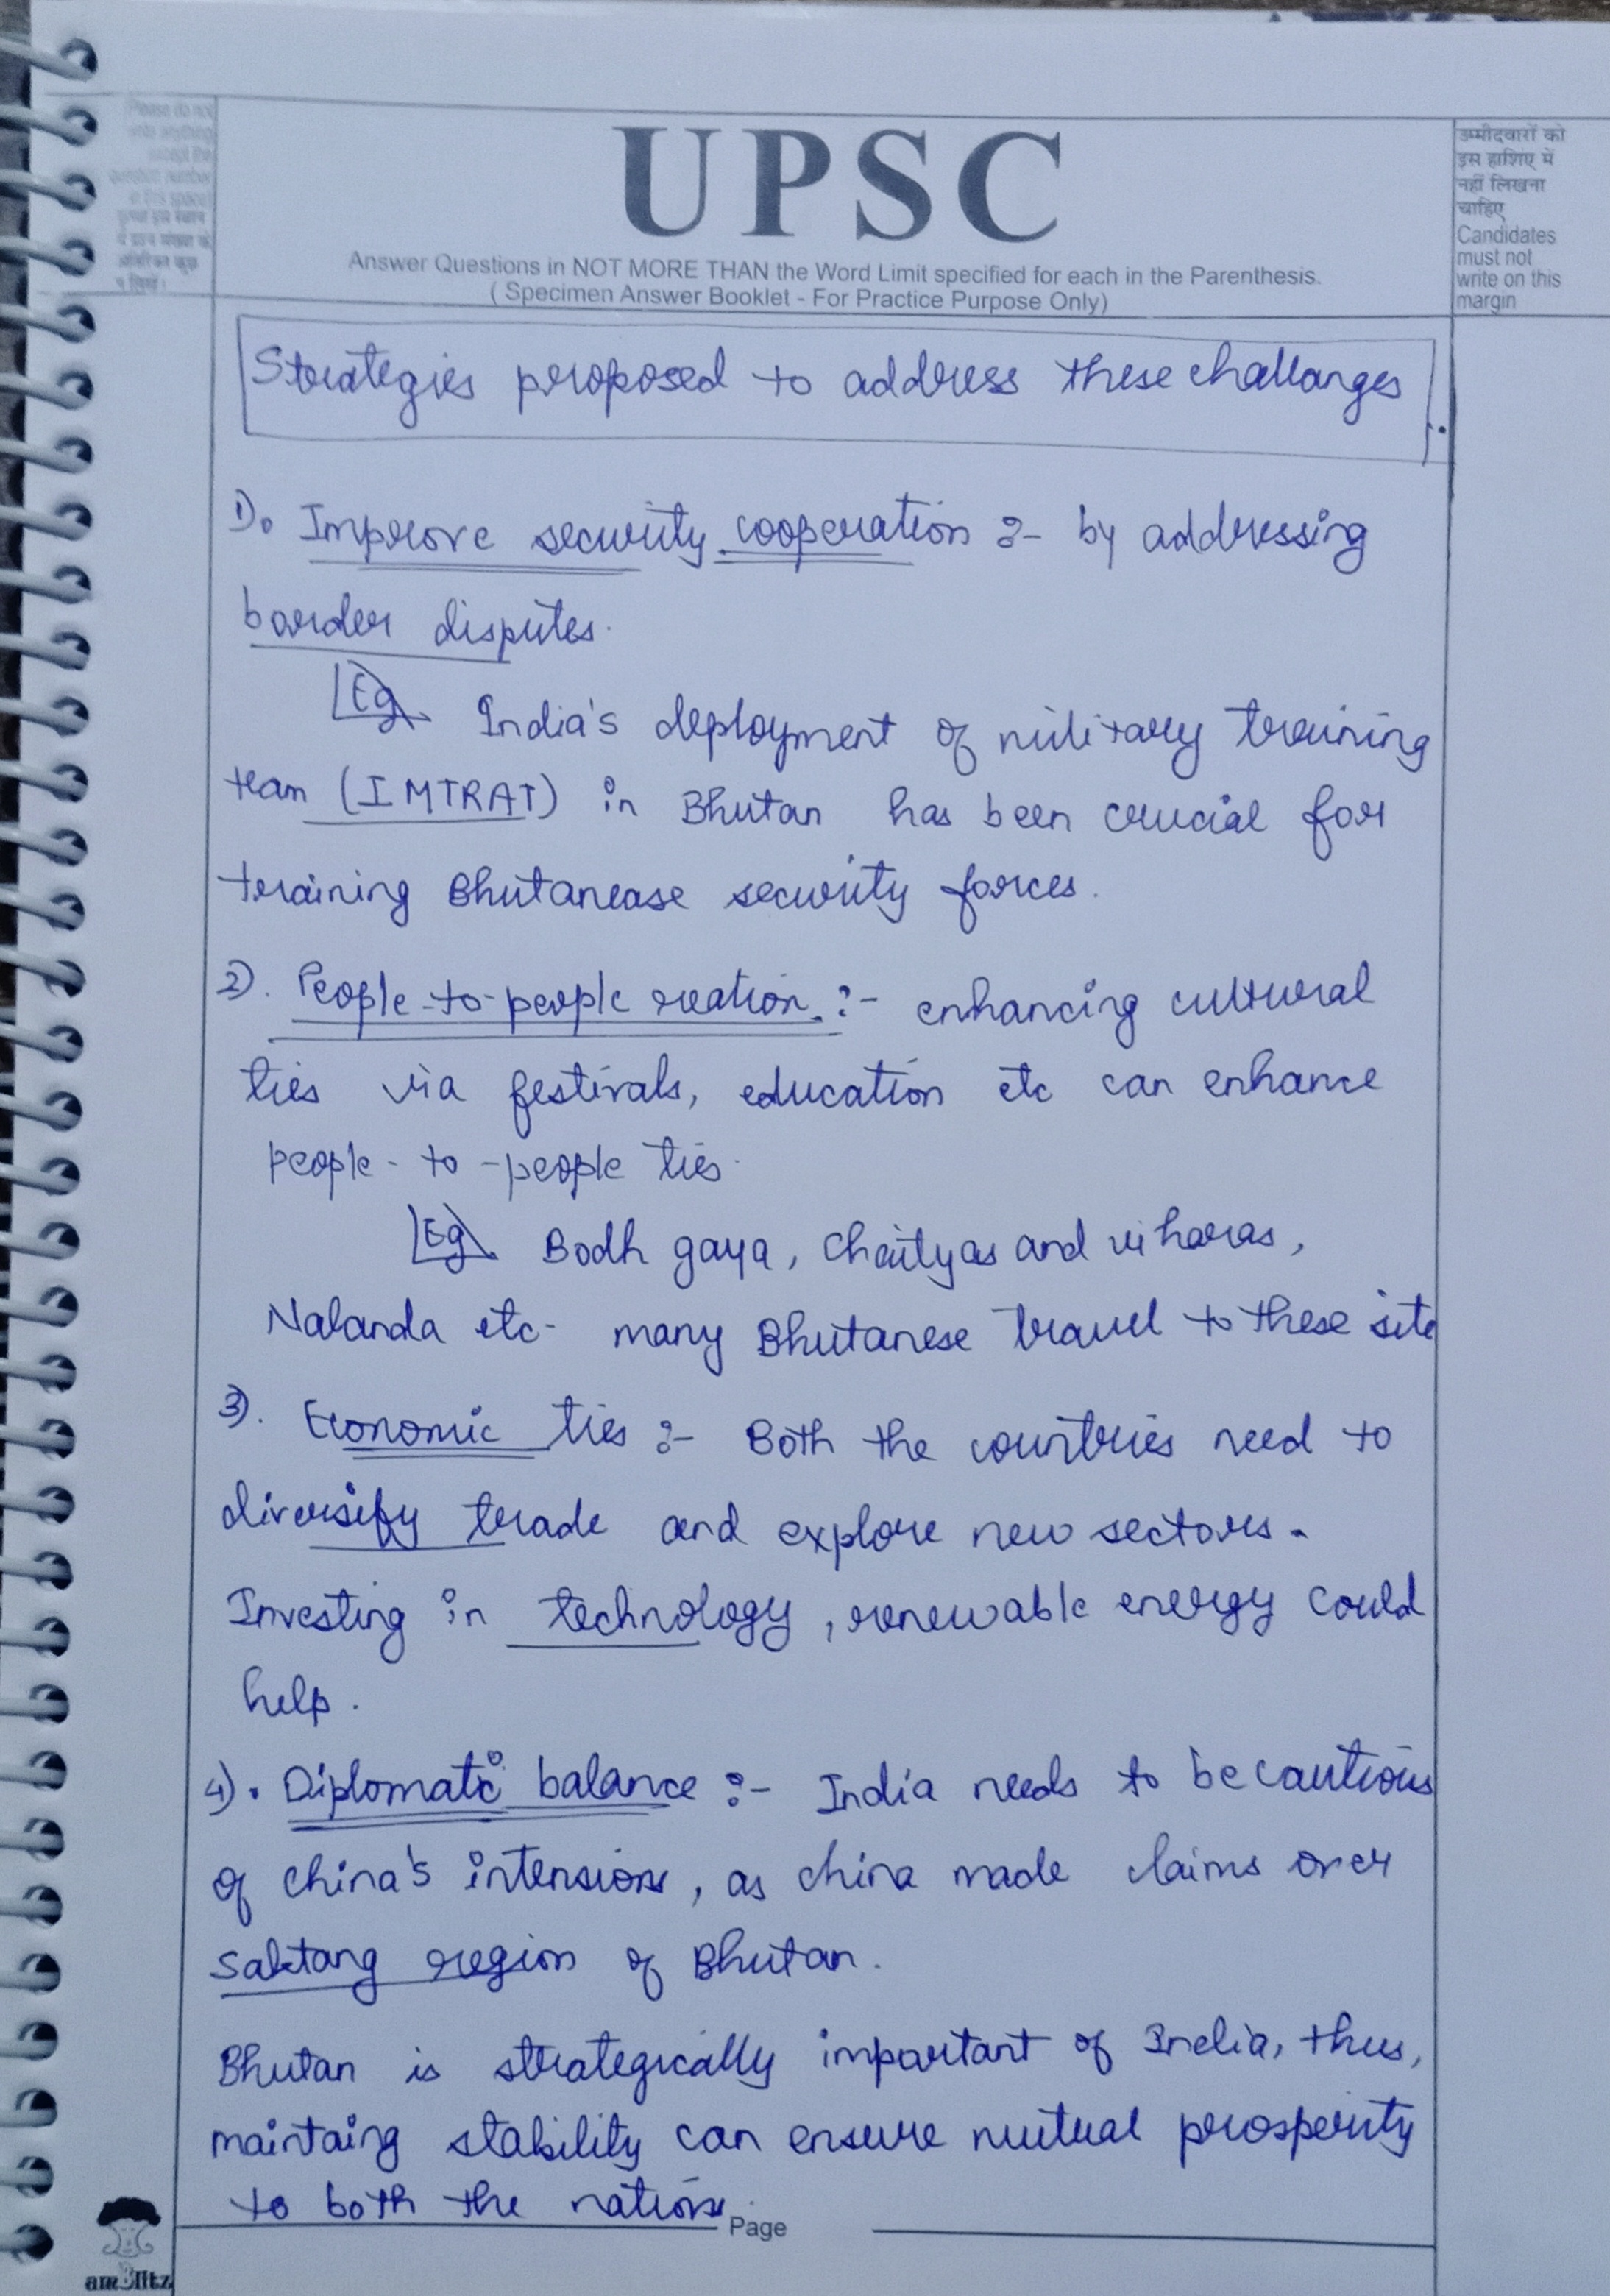 Please do not
write anything
except the
question number
in this space
UPSC
Answer Questions in NOT MORE THAN the Word Limit specified for each in the Parenthesis.
( Specimen Answer Booklet - For Practice Purpose Only)
उम्मीदवारों को
इस हाशिए में
नहीं लिखना
चाहिए
Candidates
must not
write on this
margin
Strategies proposed to address these challanges.
1). Improve security cooperation :- by addressing
border disputes.
Eg India's deployment of military training
team (IMTRAT) in Bhutan has been crucial for
training Bhutanease security forces.
2). People-to-people reation :- enhancing cultural
ties via festivals, education etc can enhance
people-to-people ties.
Eg Bodh gaya, Chaityas and viharas,
Nalanda etc- many Bhutanese travel to these site
3). Economic ties :- Both the countries need to
diversify trade and explore new sectors.
Investing in technology, renewable energy could
help.
4). Diplomatic balance :- India needs to be cautious
of China's intensions, as china made claims over
Saktang region of Bhutan.
Bhutan is strategically important of India, thus,
maintaing stability can ensure mutual prosperity
to both the nations.
Page
am3litz